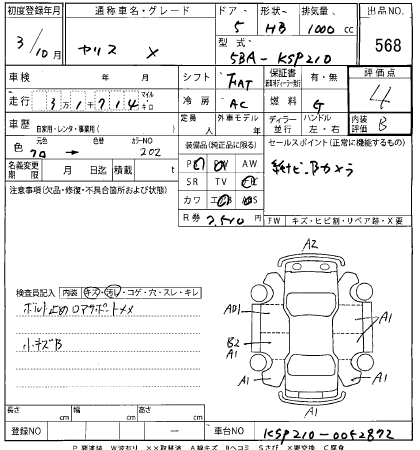 初度登録年月 通称車名・グレード ドア・形状・排気量 出品NO
3/10月 ヤリス X 5 HB 1000 cc 568
型式 5BA-KSP210
車検 年 月 シフト FAT 保証書 有・無 評価点
走行 3万1千714 マイル キロ 冷房 AC 燃料 G 4
車歴 自家用・レンタ・事業用( ) 定員 人 外車モデル 年 ディーラー 並行 ハンドル 左・右 内装評価 B
色 元色 クロ → 色替 カラーNO 202 装備品(純正品に限る) セールスポイント(正常に機能するもの)
名義変更期限 月 日迄 積載 t PS PW AW ナビ、Bカメラ
注意事項(欠品・修復・不具合箇所および状態) SR TV
カワ エアB ABS
R券 FW キズ・ヒビ割・リペア跡・X要
A2
検査員記入 内装 キズ・汚レ・コゲ・穴・スレ・キレ
ボルト止めロアサポートメメ A1 A1
小キズB B2 A1
A1 A1
A1 A1
長さ cm 幅 cm 高さ cm
登録NO 車台NO KSP210-0052872
P要塗装 W波有り XX取替済 A線キズ Bヘコミ Sさび X要交換 C腐食